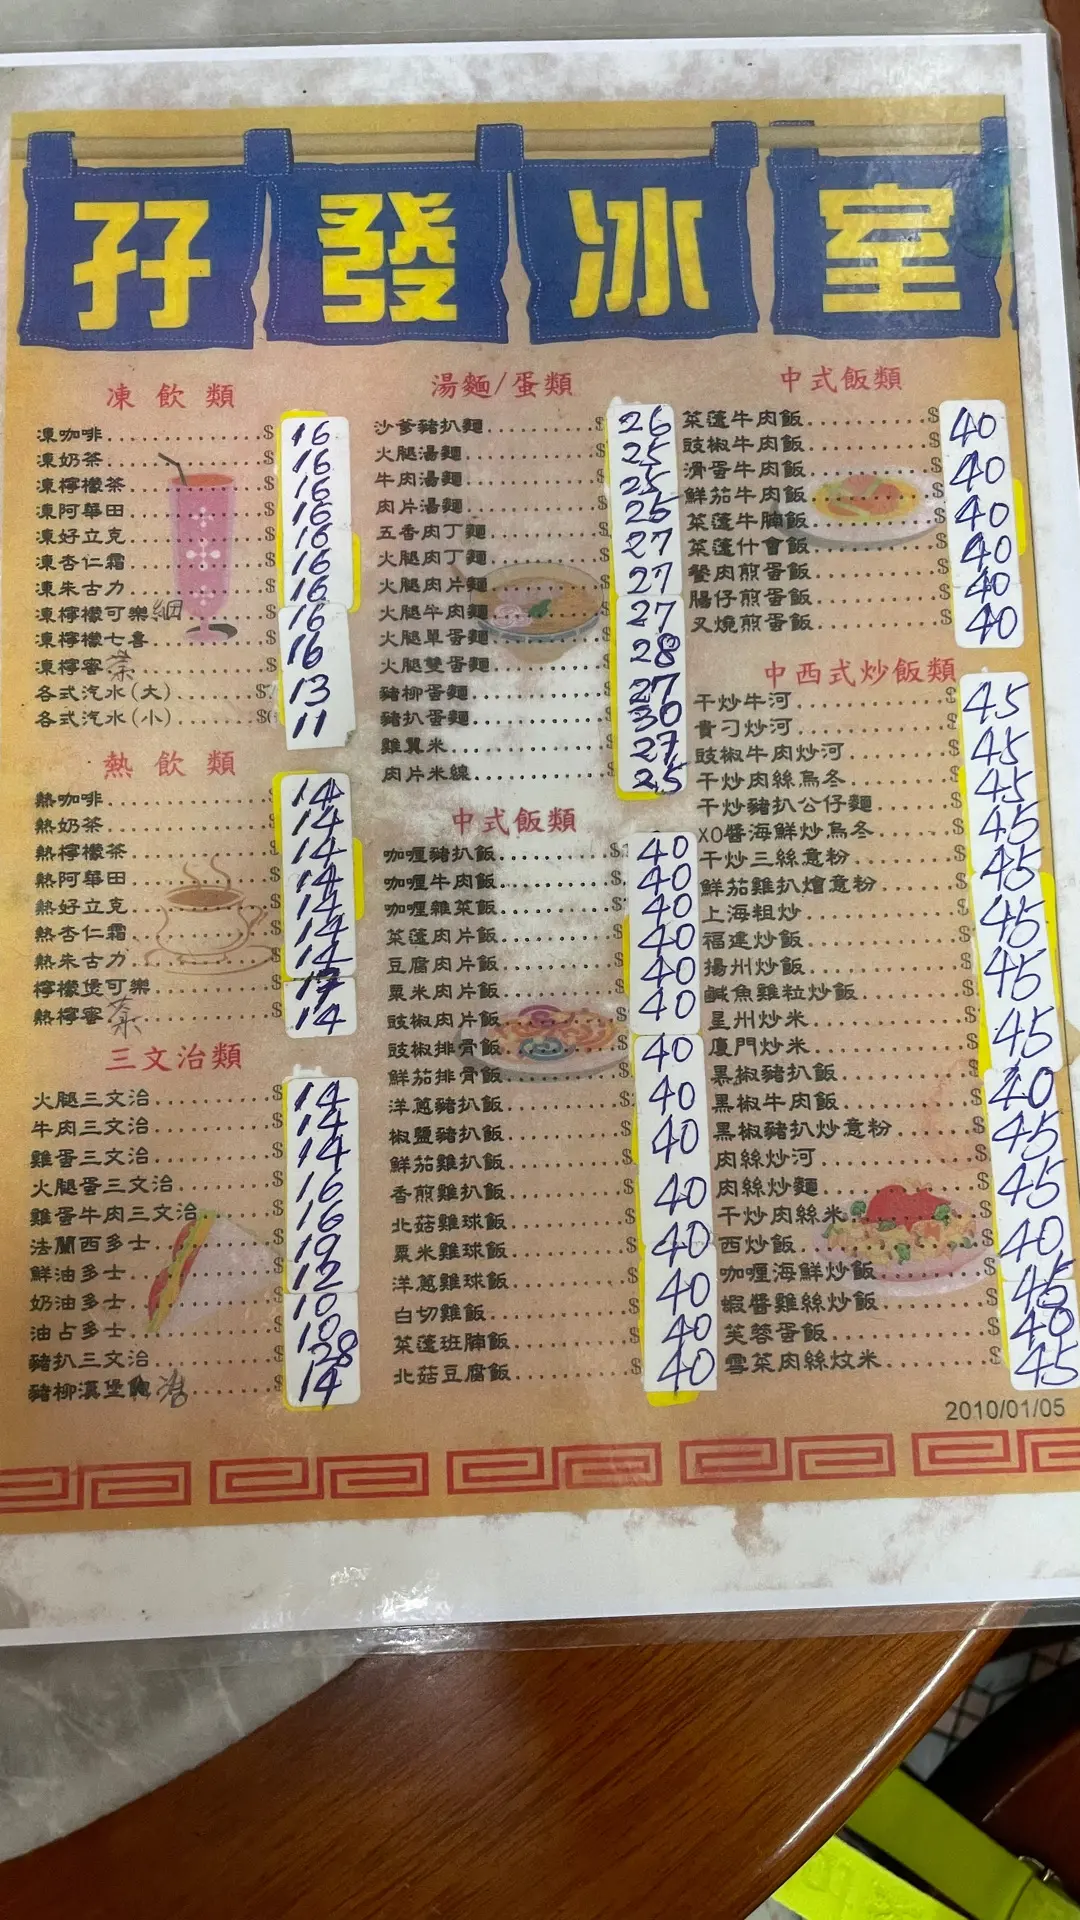 孖發冰室
凍飲類
凍咖啡 $ 16
凍奶茶 $ 16
凍檸檬茶 $ 16
凍阿華田 $ 16
凍好立克 $ 16
凍杏仁霜 $ 16
凍朱古力 $ 16
凍檸檬可樂 細 $ 16
凍檸檬七喜 $ 16
凍檸蜜 $
各式汽水(大) $ 13
各式汽水(小) $ 11
熱飲類
熱咖啡 $ 14
熱奶茶 $ 14
熱檸檬茶 $ 14
熱阿華田 $ 14
熱好立克 $ 14
熱杏仁霜 $ 14
熱朱古力 $ 14
檸檬煲可樂 $ 17
熱檸蜜 $ 14
三文治類
火腿三文治 $ 14
牛肉三文治 $ 14
雞蛋三文治 $ 14
火腿蛋三文治 $ 16
雞蛋牛肉三文治 $ 16
法蘭西多士 $ 19
鮮油多士 $ 12
奶油多士 $ 10
油占多士 $ 10
豬扒三文治 $ 28
豬柳漢堡飽 $ 14
湯麵/蛋類
沙爹豬扒麵 $ 26
火腿湯麵 $ 25
牛肉湯麵 $ 25
肉片湯麵 $ 25
五香肉丁麵 $ 27
火腿肉丁麵 $
火腿肉片麵 $ 27
火腿牛肉麵 $ 27
火腿單蛋麵 $
火腿雙蛋麵 $ 28
豬柳蛋麵 $ 27
豬扒蛋麵 $ 30
雞翼米 $ 27
肉片米線 $ 25
中式飯類
咖喱豬扒飯 $ 40
咖喱牛肉飯 $ 40
咖喱雜菜飯 $ 40
菜蓬肉片飯 $ 40
豆腐肉片飯 $ 40
粟米肉片飯 $ 40
豉椒肉片飯 $
豉椒排骨飯 $ 40
鮮茄排骨飯 $
洋蔥豬扒飯 $ 40
椒鹽豬扒飯 $ 40
鮮茄雞扒飯 $
香煎雞扒飯 $ 40
北菇雞球飯 $
粟米雞球飯 $ 40
洋蔥雞球飯 $ 40
白切雞飯 $
菜蓬班腩飯 $ 40
北菇豆腐飯 $ 40
中式飯類
菜蓬牛肉飯 $ 40
豉椒牛肉飯 $
滑蛋牛肉飯 $ 40
鮮茄牛肉飯 $
菜蓬牛腩飯 $ 40
菜蓬什會飯 $ 40
餐肉煎蛋飯 $ 40
腸仔煎蛋飯 $
叉燒煎蛋飯 $ 40
中西式炒飯類
干炒牛河 $ 45
貴刁炒河 $
豉椒牛肉炒河 $ 45
干炒肉絲烏冬 $ 45
干炒豬扒公仔麵 $
XO醬海鮮炒烏冬 $ 45
干炒三絲意粉 $ 45
鮮茄雞扒燴意粉 $
上海粗炒 $ 45
福建炒飯 $
揚州炒飯 $ 45
鹹魚雞粒炒飯 $
星州炒米 $ 45
廈門炒米 $
黑椒豬扒飯 $ 40
黑椒牛肉飯 $
黑椒豬扒炒意粉 $ 45
肉絲炒河 $
肉絲炒麵 $ 45
干炒肉絲米 $
西炒飯 $ 40
咖喱海鮮炒飯 $ 45
蝦醬雞絲炒飯 $
芙蓉蛋飯 $ 40
雪菜肉絲炆米 $ 45
2010/01/05